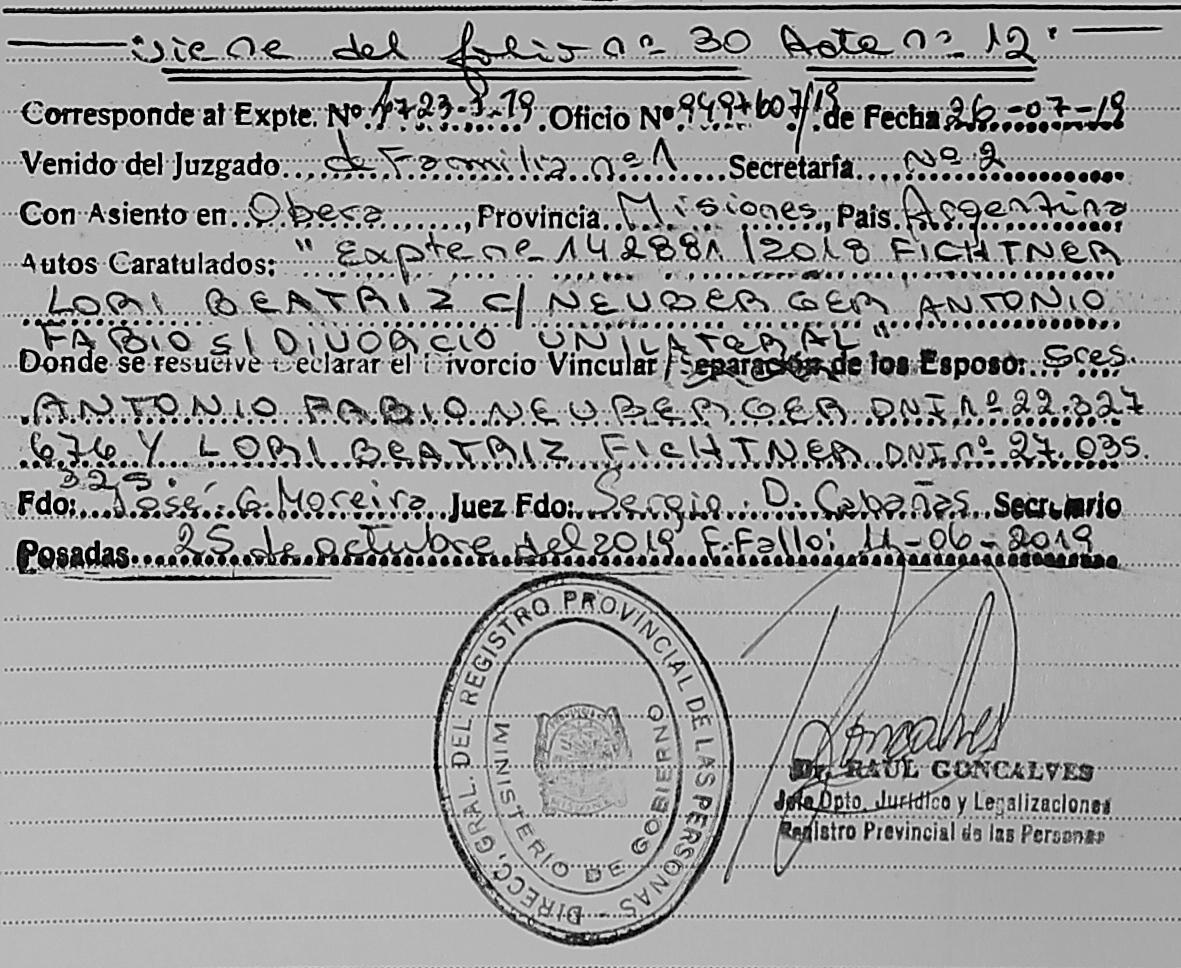 Viene del folio nº 30 Acta nº 12.
Corresponde al Expte. Nº 4723-J-19. Oficio Nº 9497607/19 de Fecha 26-07-19
Venido del Juzgado de Familia nº 1 Secretaría Nº 2
Con Asiento en Obera, Provincia Misiones, Pais Argentina
Autos Caratulados: "Expte nº 142881/2018 FICHTNER
LORI BEATRIZ C/ NEUBERGER ANTONIO
FABIO S/ DIVORCIO UNILATERAL"
Donde se resuelve Declarar el Divorcio Vincular / Separación de los Esposo: Sres.
ANTONIO FABIO NEUBERGER DNI Nº 22.327
676 Y LORI BEATRIZ FICHTNER DNI nº 27.035.
325.
Fdo: José G. Moreira Juez Fdo: Sergio D. Cabañas Secretario
Posadas 25 de octubre del 2019 F. Fallo: 11-06-2019
DIRECC. GRAL. DEL REGISTRO PROVINCIAL DE LAS PERSONAS -
MINISTERIO DE GOBIERNO
Goncalves
Dr. RAUL GONCALVES
Jefe Dpto. Jurídico y Legalizaciones
Registro Provincial de las Personas